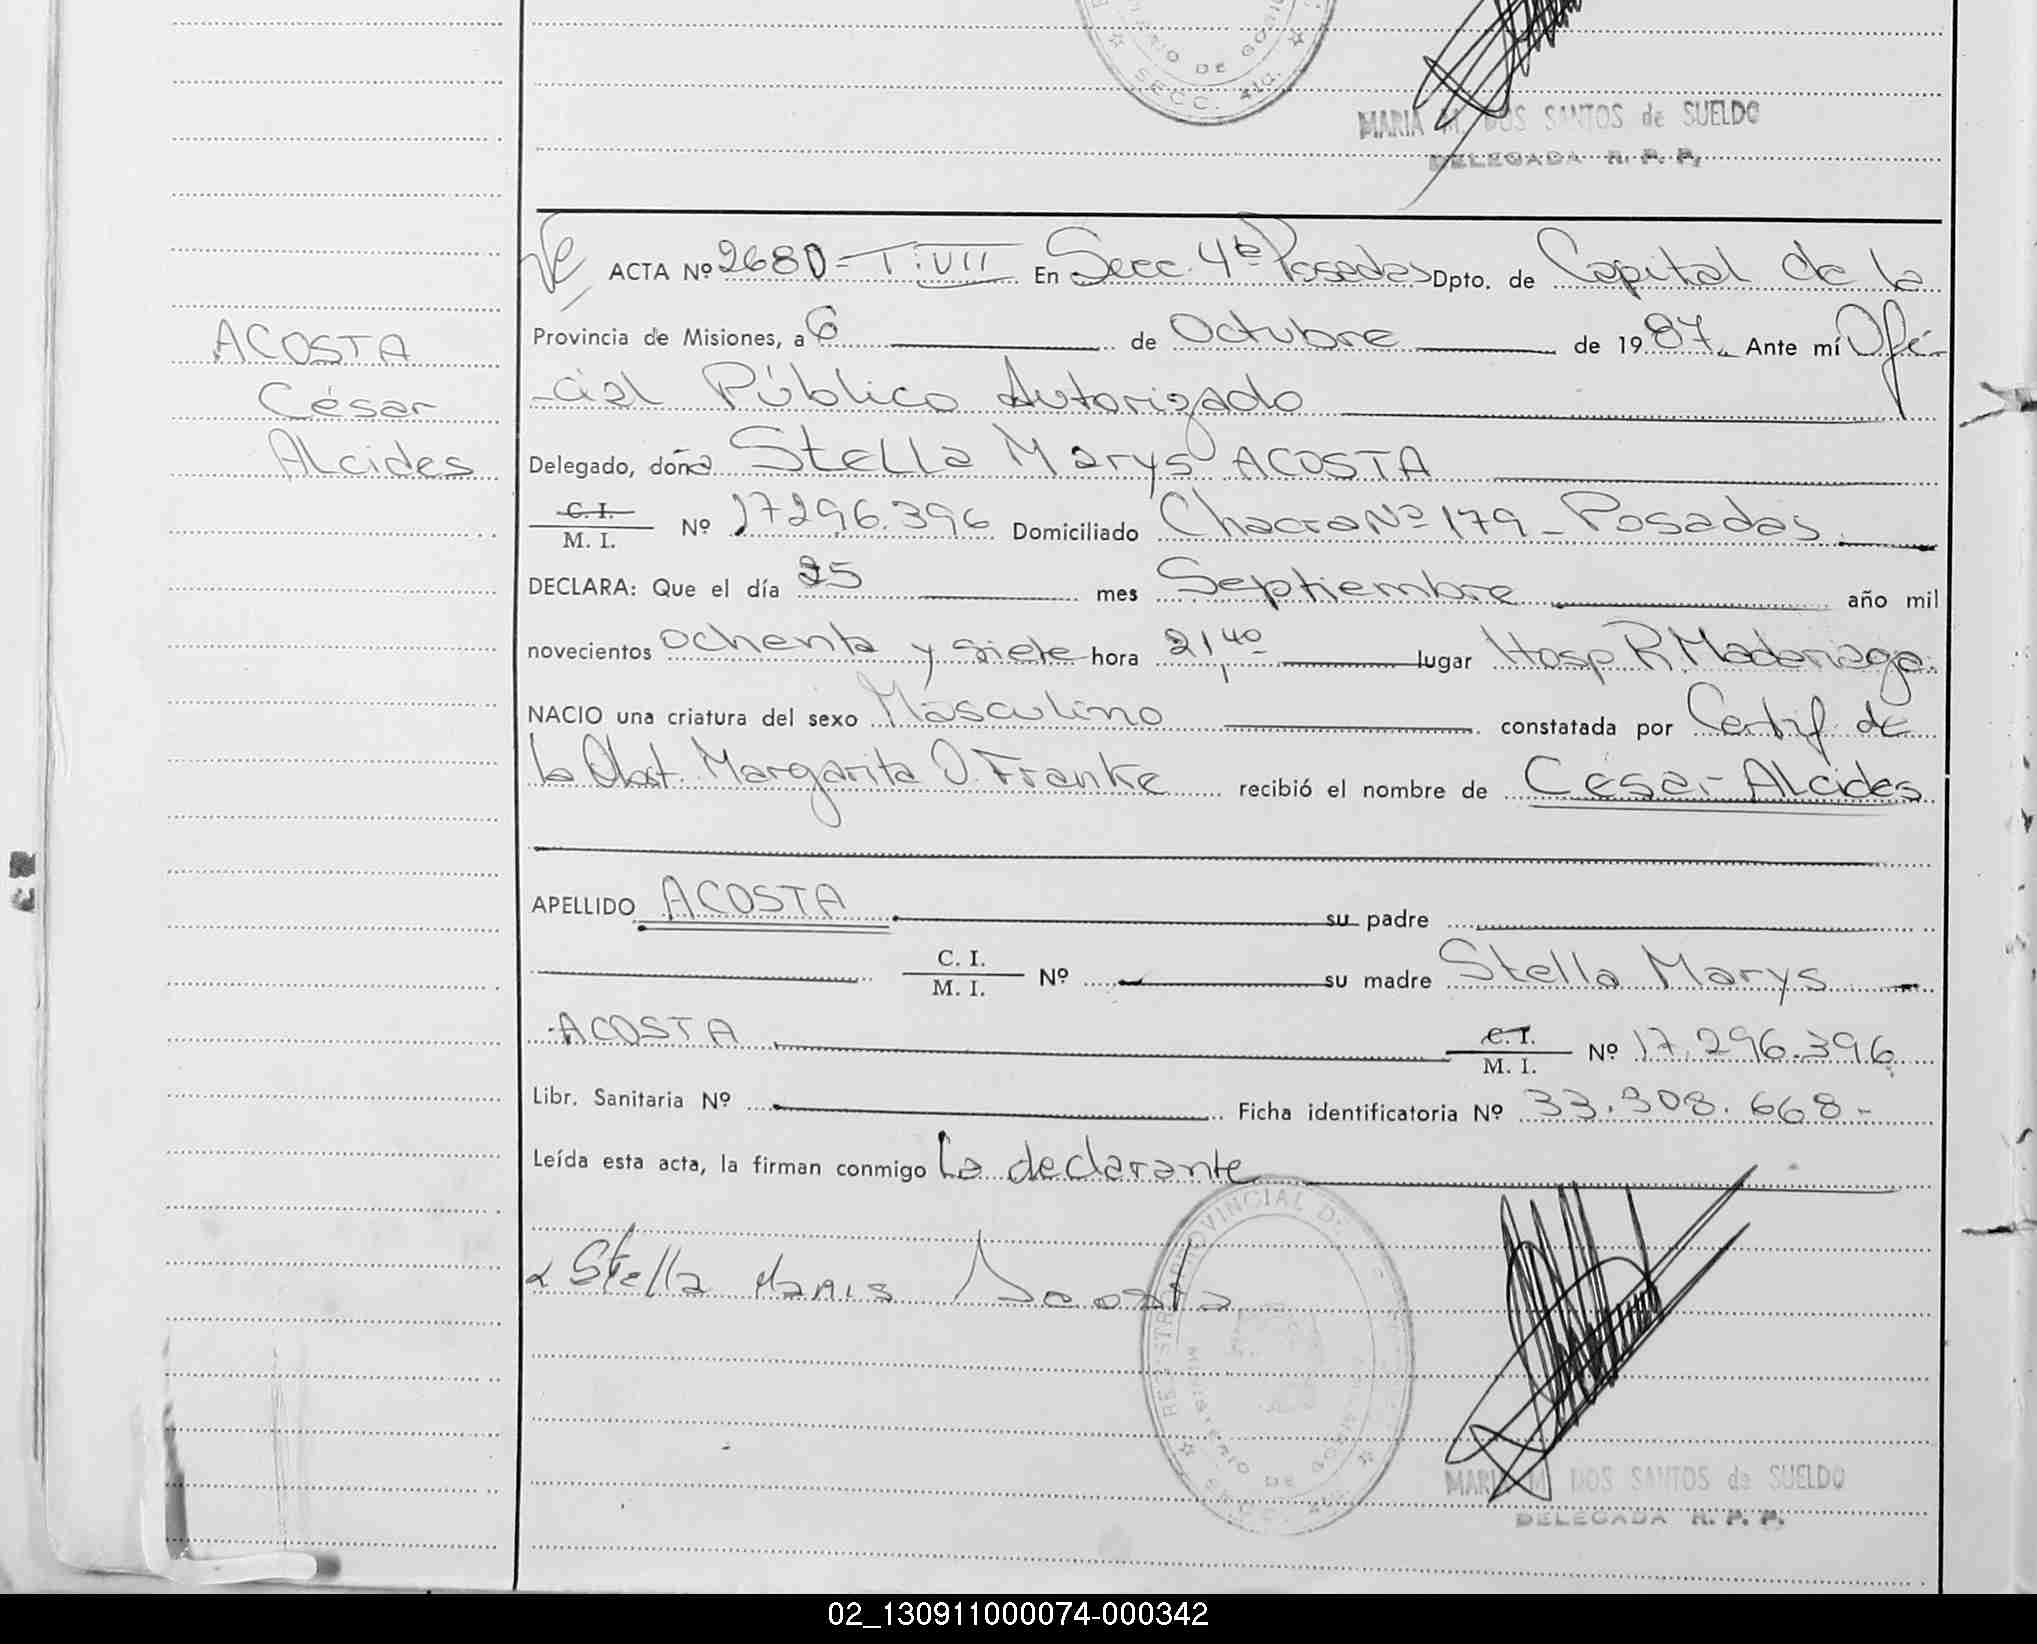 MINISTERIO DE GOBIERNO
SECC. 4ta.
MARIA M. DOS SANTOS de SUELDO
DELEGADA R. P. P.
ACOSTA
César
Alcides
ACTA Nº 2680 = T: VII En Secc. 4ª Posadas Dpto. de Capital de la
Provincia de Misiones, a 6 de Octubre de 1987. Ante mí Ofi-
-cial Público Autorizado
Delegado, doña Stella Marys ACOSTA
C. I.
M. I. Nº 17296.396 Domiciliado Chacra Nº 179 - Posadas
DECLARA: Que el día 25 mes Septiembre año mil
novecientos ochenta y siete hora 21,40 lugar Hosp R. Madariaga.
NACIO una criatura del sexo Masculino constatada por Certif de
la Obst. Margarita O. Franke recibió el nombre de César Alcides
APELLIDO ACOSTA su padre
C. I.
M. I. Nº su madre Stella Marys
ACOSTA C. I.
M. I. Nº 17.296.396
Libr. Sanitaria Nº Ficha identificatoria Nº 33.308.668-
Leída esta acta, la firman conmigo la declarante
Stella Maris Acosta
REGISTRO PROVINCIAL DE
MINISTERIO DE GOBIERNO
SECC. 4ta.
MARIA M. DOS SANTOS de SUELDO
DELEGADA R. P. P.
02_130911000074-000342